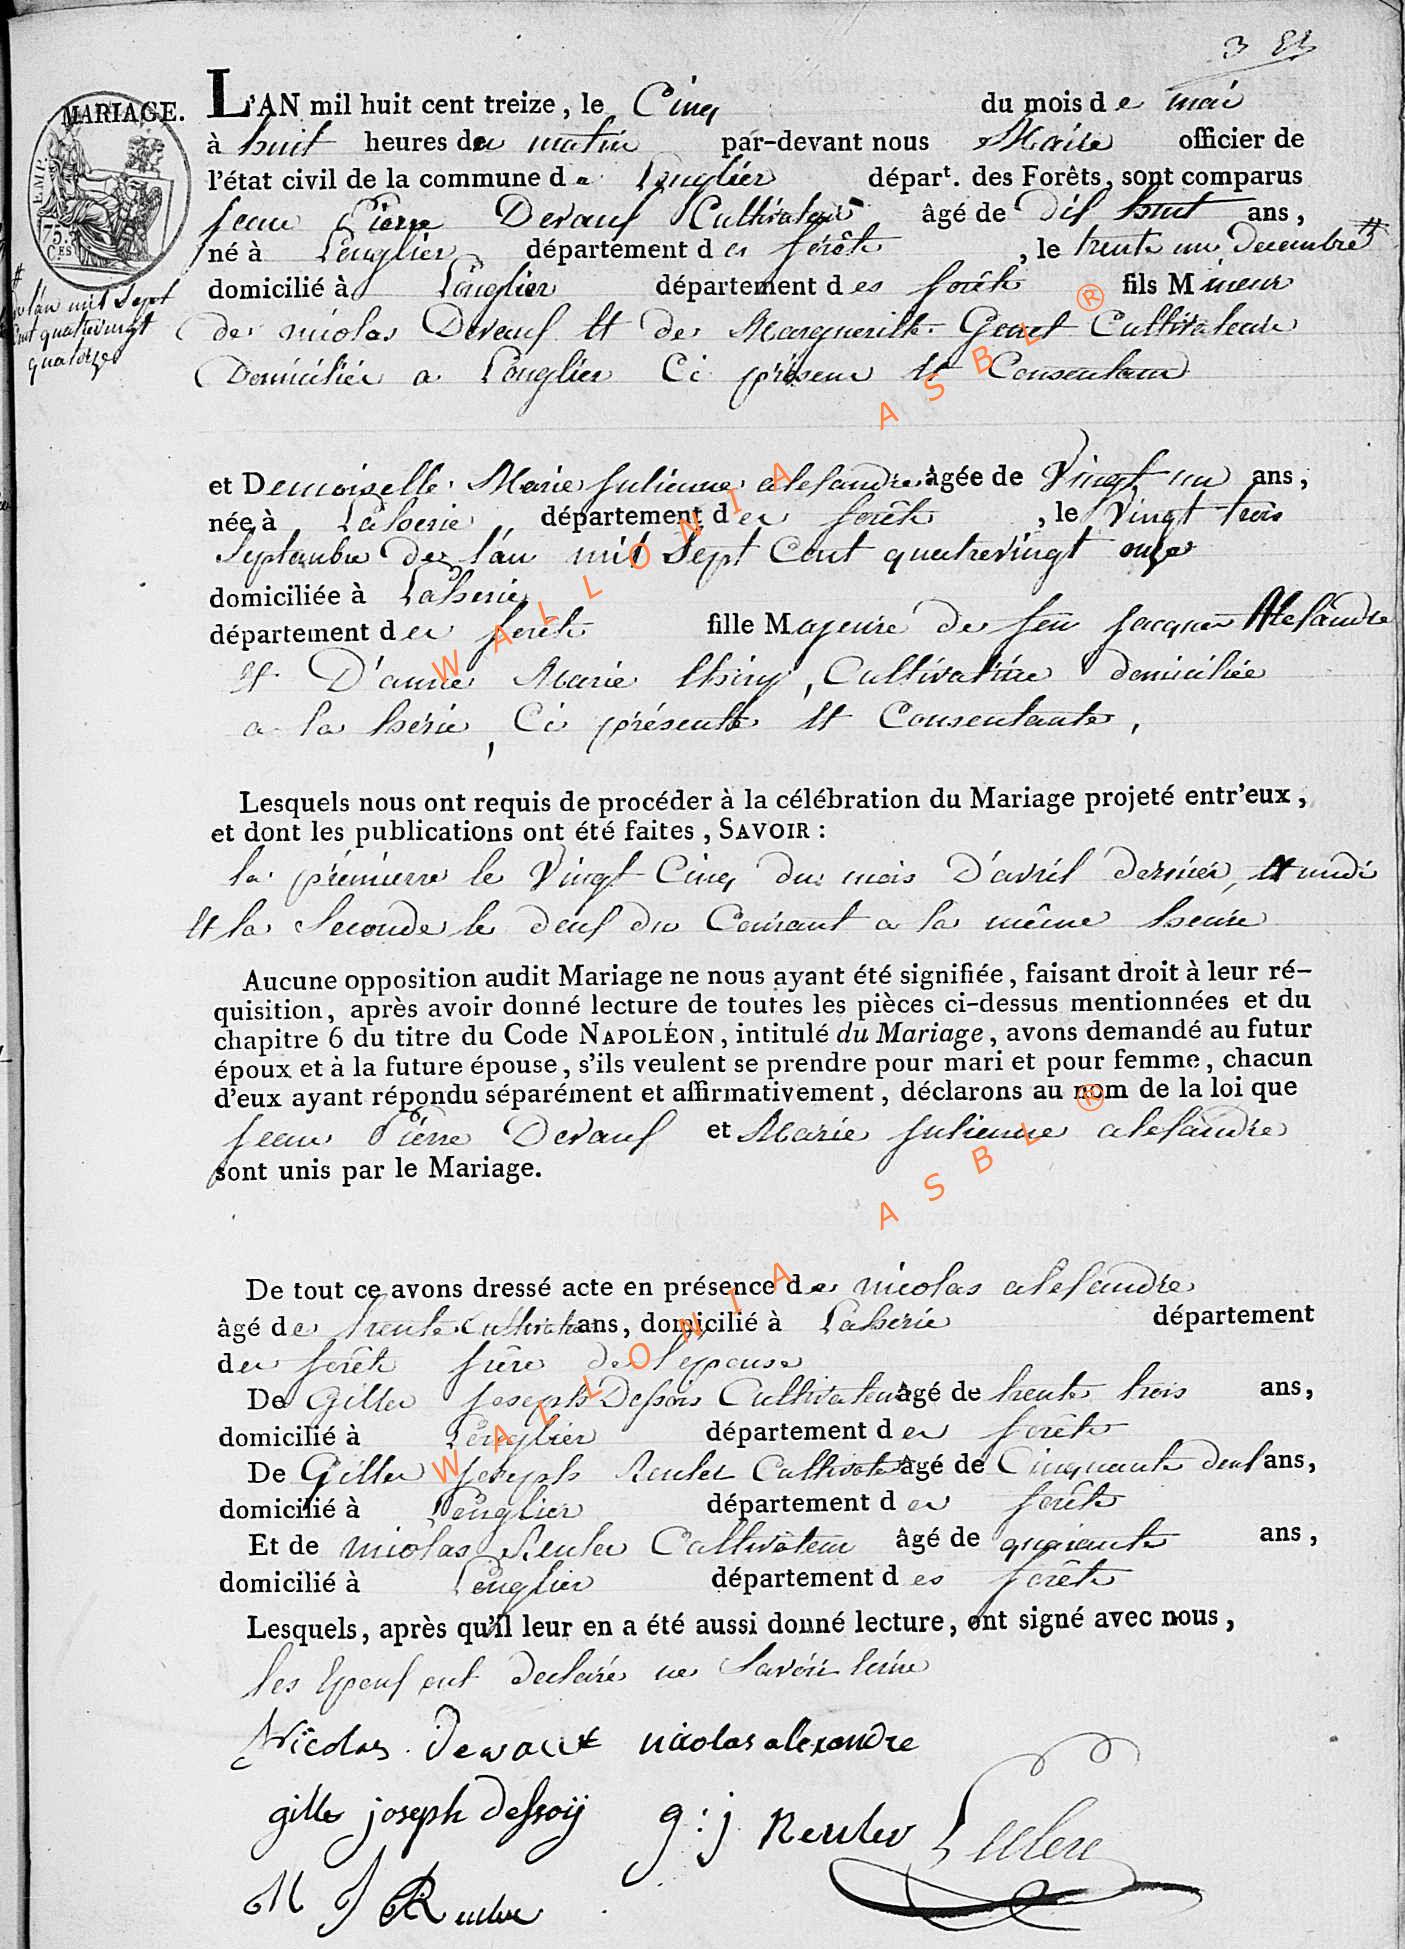 MARIAGE.
L'AN mil huit cent treize, le Cinq du mois de mai
à huit heures du matin par-devant nous Maire officier de
l'état civil de la commune de Longlier dépar<sup>t</sup>. des Forêts, sont comparus
Jean Pierre Devaux Cultivateur âgé de dix huit ans,
né à Longlier département des forêts, le trente un decembre #
domicilié à Longlier département des forêts fils Mineur
# de l'an mil sept
Cent quatrevingt
quatorze
de nicolas Devaux et de Margueritte Genet Cultivateurs
Domiciliés a Longlier Ci présens et Consentans
et Demoiselle Marie Julienne alexandre âgée de Vingt un ans,
née à Laherie département des forêts, le Vingt trois
Septembre de l'an mil Sept Cent quatrevingt onze
domiciliée à Laherie
département des forêts fille Majeure de feu Jacques Alexandre
et D'anne Marie thiry, Cultivatrice domiciliée
a la herie, Ci présente et Consentante,
Lesquels nous ont requis de procéder à la célébration du Mariage projeté entr'eux,
et dont les publications ont été faites, SAVOIR :
la prémierre le Vingt Cinq du mois D'avril dernier, a midi
et la Seconde le deux du Courant a la même heure
Aucune opposition audit Mariage ne nous ayant été signifiée, faisant droit à leur ré-
quisition, après avoir donné lecture de toutes les pièces ci-dessus mentionnées et du
chapitre 6 du titre du Code NAPOLÉON, intitulé du Mariage, avons demandé au futur
époux et à la future épouse, s'ils veulent se prendre pour mari et pour femme, chacun
d'eux ayant répondu séparément et affirmativement, déclarons au nom de la loi que
Jean Pierre Devaux et Marie Julienne alexandre
sont unis par le Mariage.
De tout ce avons dressé acte en présence de nicolas alexandre
âgé de trente Cultivateur ans, domicilié à Laherie département
des forêts frère de l'epouse
De Gilles Joseph Dessois Cultivateur âgé de trente trois ans,
domicilié à Longlier département des forêts
De Gilles Joseph Reuler Cultivateur âgé de Cinquante deux ans,
domicilié à Longlier département des forêts
Et de nicolas Reuler Cultivateur âgé de quarante ans,
domicilié à Longlier département des forêts
Lesquels, après qu'il leur en a été aussi donné lecture, ont signé avec nous,
les Epoux ont declaré ne Savoir Ecrire
Nicolas Devaux nicolas alexandre
gille joseph dessoij g : j Reuler Leclere
M J Reuler
WALLONIA ASBL ®
WALLONIA ASBL ®